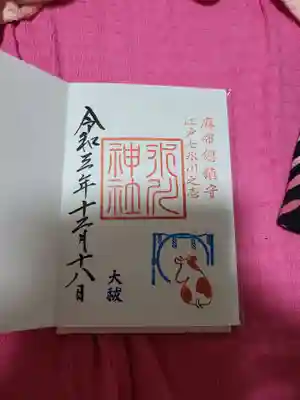 麻布総鎮守
江戸七氷川之壱
氷川
神社
大祓
令和三年十二月十八日